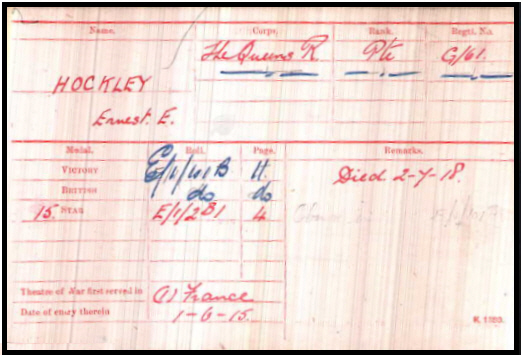 Name. Corps. Rank. Regtl. No.
The Queens R. Pte G/61.
HOCKLEY
Ernest. E.
Medal. Roll. Page. Remarks.
VICTORY E/1/101 B H.
BRITISH do do Died 2-7-18.
15 STAR E/1/2 B1 4
Theatre of War first served in (1) France
Date of entry therein 1-6-15.
K. 1380.